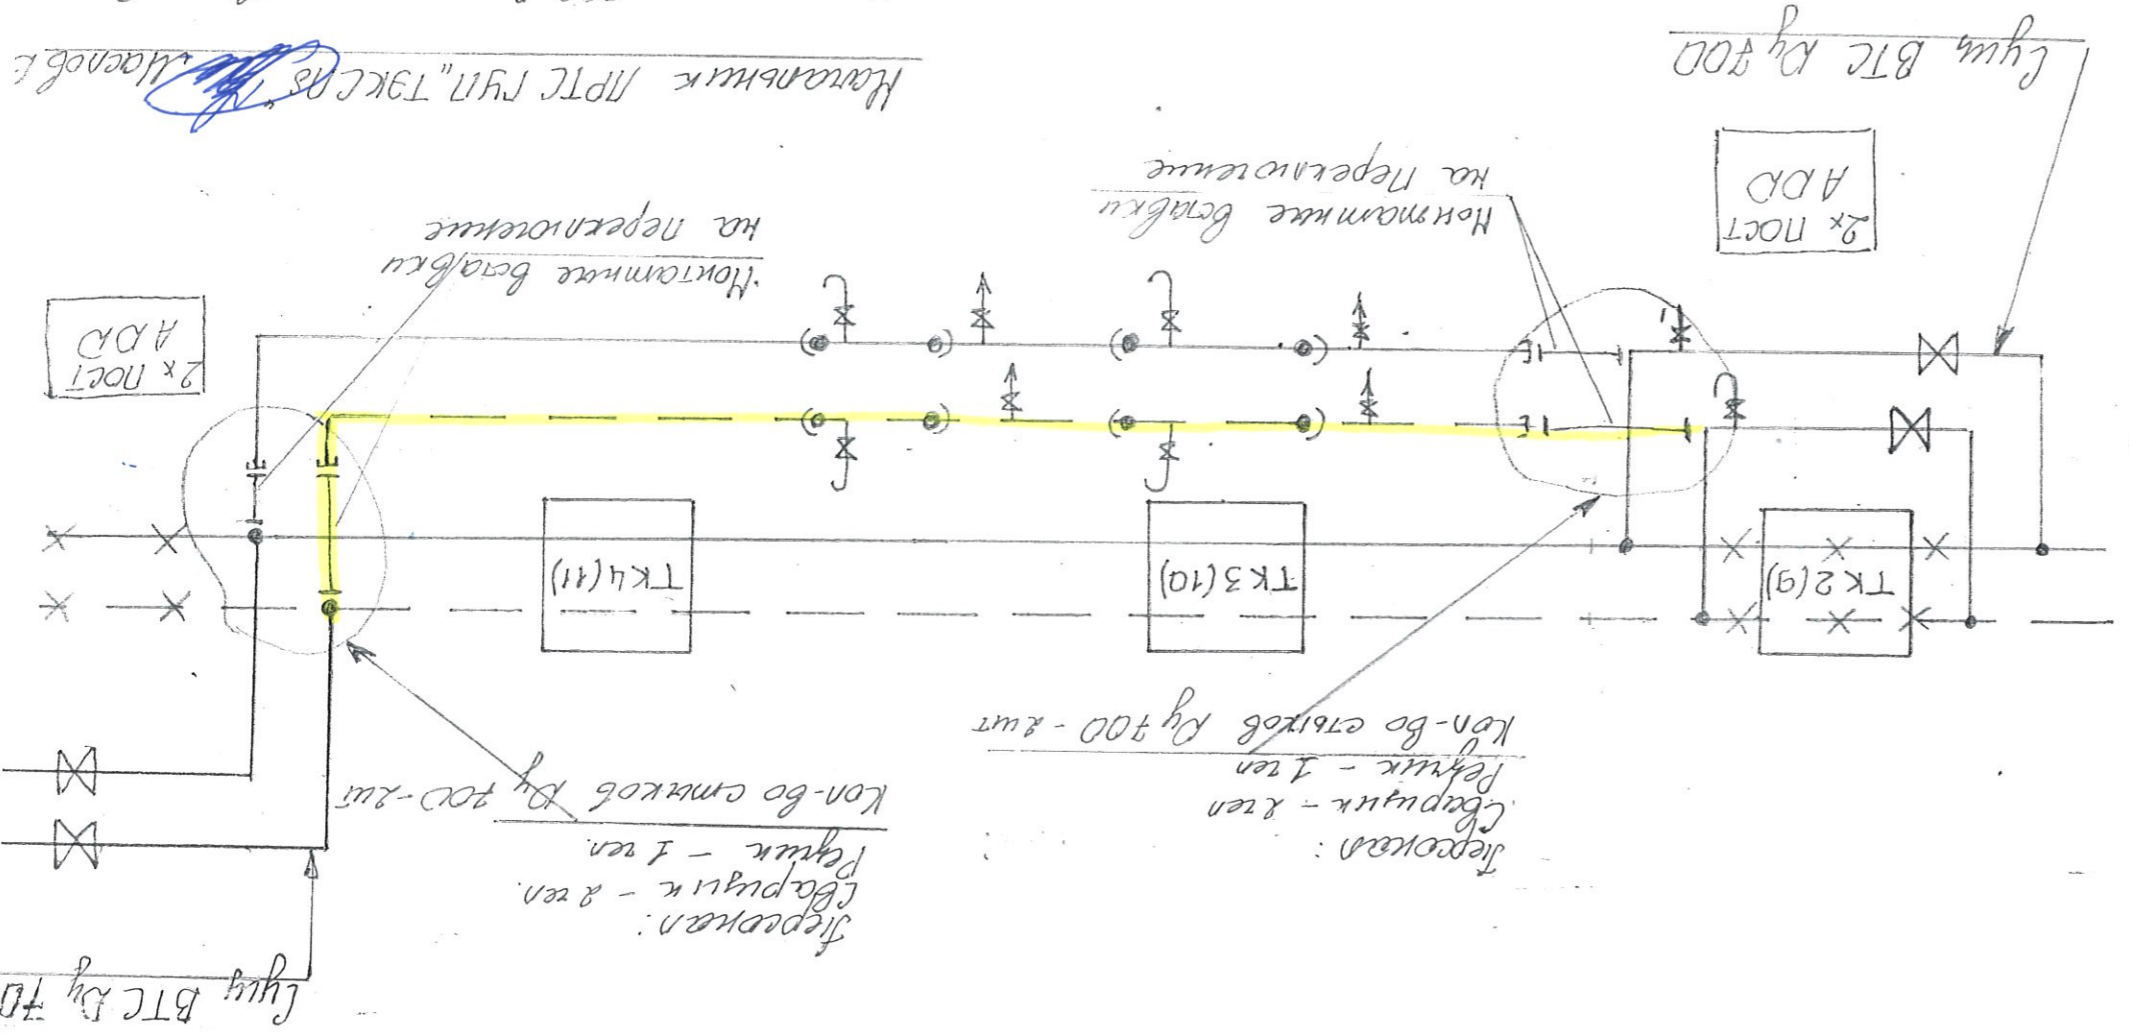 Сущ ВТС Ду 70
Персонал:
Сварщик - 2 чел.
Резчик - 1 чел.
Кол-во стыков Ду 700-2шт
Персонал:
Сварщик - 2 чел
Резчик - 1 чел
Кол-во стыков Ду 700-2шт
ТК2(9)
ТК3(10)
ТК4(11)
2х ПОСТ
АДД
Монтажные вставки
на переключение
Монтажные вставки
на переключение
2х ПОСТ
АДД
Сущ ВТС Ду 700
Начальник ПРТС ГУП „ТЭК СПб" Маслов